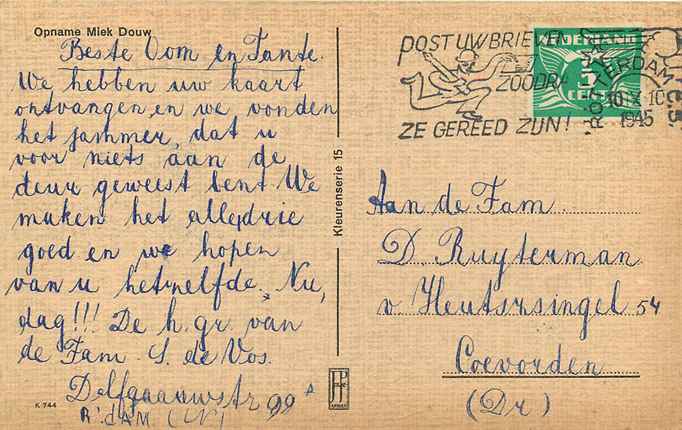 Opname Miek Douw
Beste Oom en Tante.
We hebben uw kaart
ontvangen en we vonden
het jammer, dat u
voor niets aan de
deur geweest bent. We
maken het alledrie
goed en we hopen
van u hetzelfde. Nu,
dag!!! De h. gr. van
de Fam. S. de Vos.
Delfgaauwstr 99 A
R'DAM. (W)
K 744
Kleurenserie 15
POST UW BRIEVEN
ZOODRA
ZE GEREED ZIJN!
NEDERLAND
5
CENT
ROTTERDAM
10 X 10
1945
Aan de Fam.
D. Ruyterman
v. Heutszsingel 54
Coevorden
(Dr.)